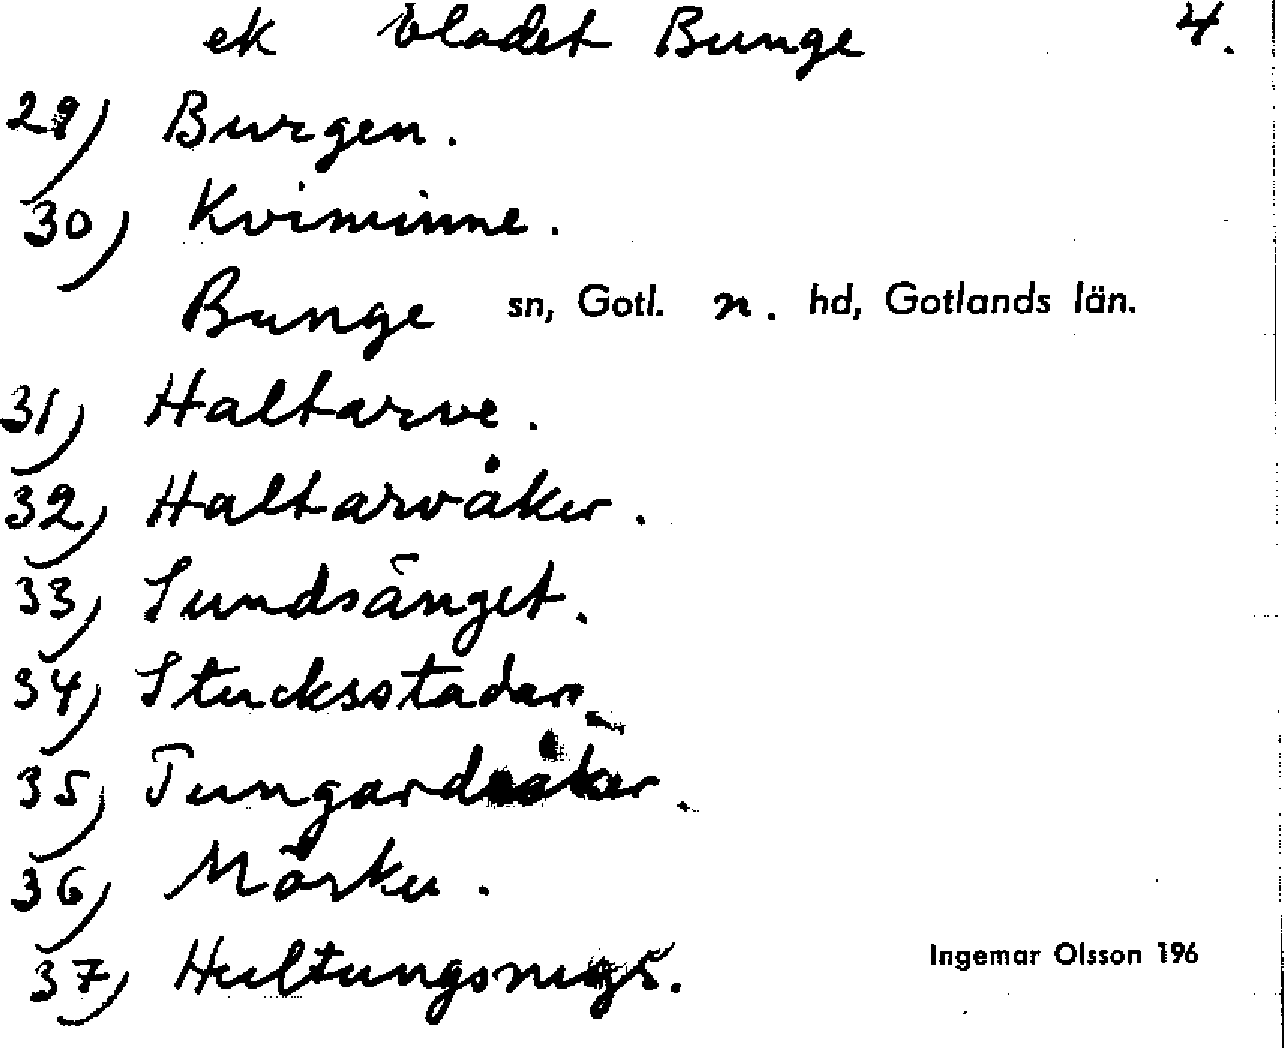 ek bladet Bunge 4.
29) Burgen.
30) Kviminne.
Bunge sn, Gotl. n. hd, Gotlands län.
31) Haltarve.
32) Haltarvåker.
33) Sundsänget.
34) Stucksstadan
35) Tungardsåker.
36) Mörku.
37)
Ingemar Olsson 196